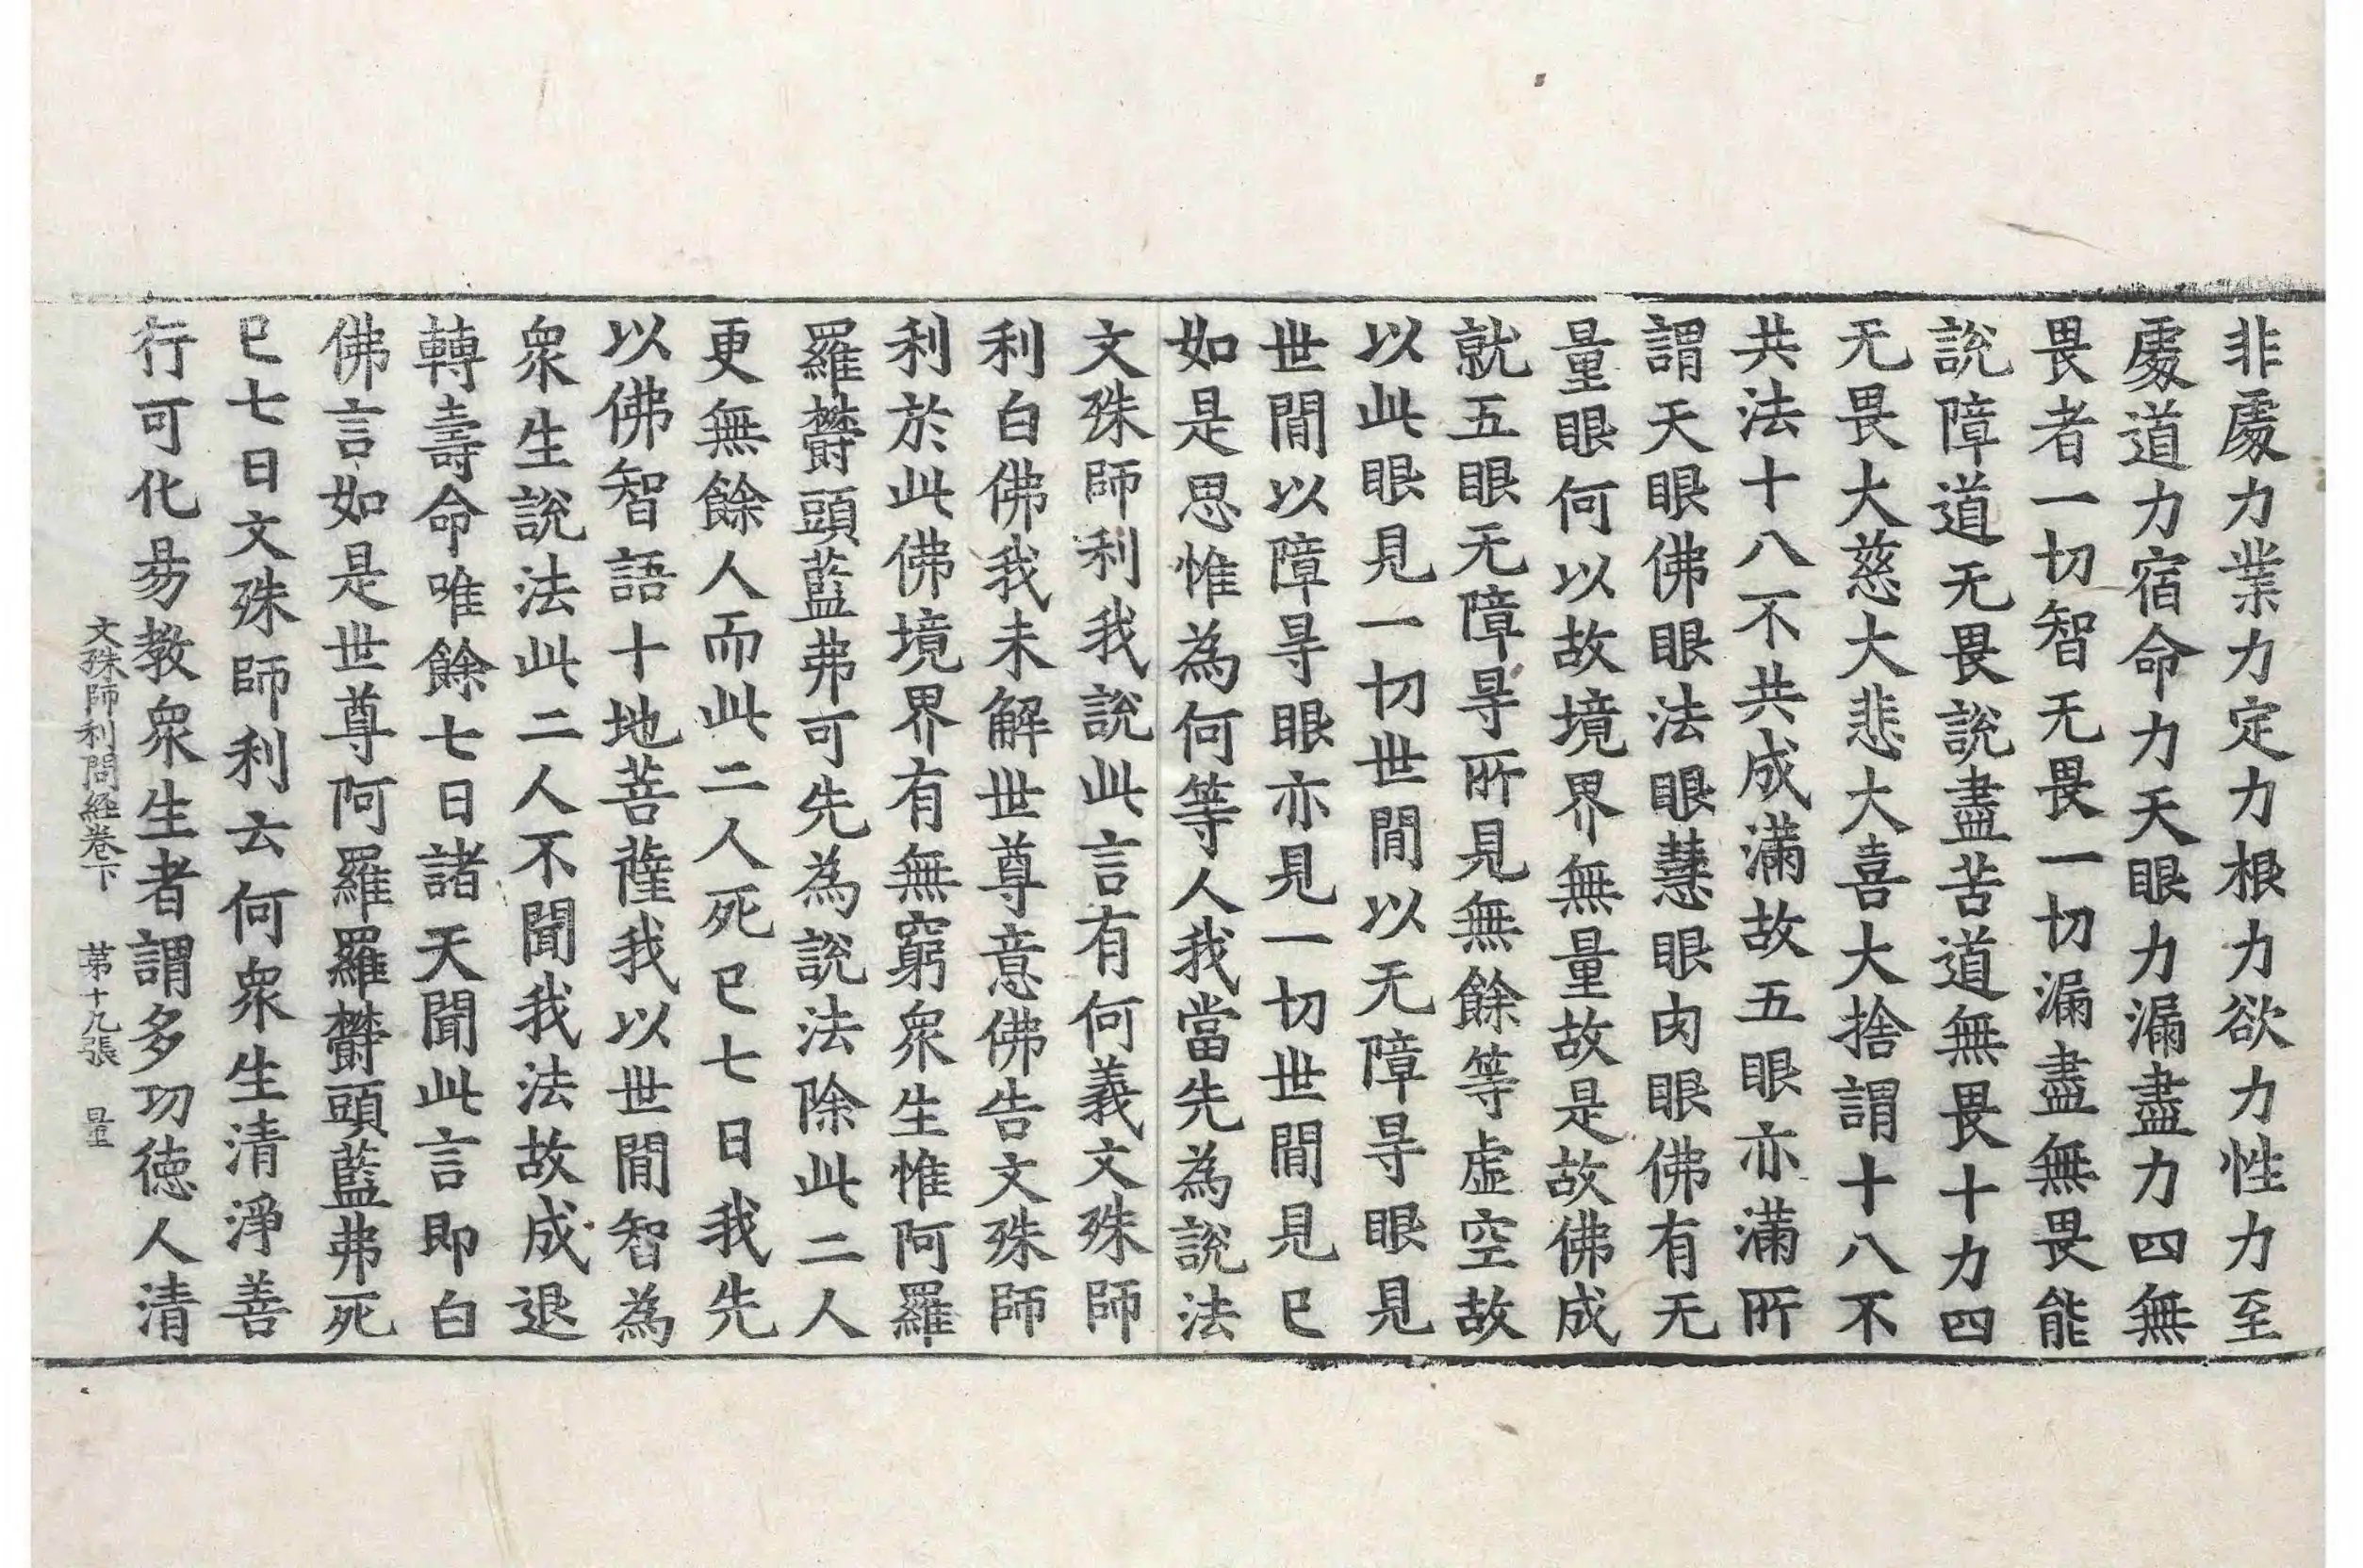 非處力業力定力根力欲力性力至
處道力宿命力天眼力漏盡力四無
畏者一切智无畏一切漏盡無畏能
說障道无畏說盡苦道無畏十力四
无畏大慈大悲大喜大捨謂十八不
共法十八不共成滿故五眼亦滿所
謂天眼佛眼法眼慧眼肉眼佛有无
量眼何以故境界無量故是故佛成
就五眼无障㝵所見無餘等虛空故
以此眼見一切世間以无障㝵眼見
世間以障㝵眼亦見一切世間見已
如是思惟為何等人我當先為說法
文殊師利我說此言有何義文殊師
利白佛我未解世尊意佛告文殊師
利於此佛境界有無窮衆生惟阿羅
羅欝頭藍弗可先為說法除此二人
更無餘人而此二人死已七日我先
以佛智語十地菩薩我以世間智為
衆生說法此二人不聞我法故成退
轉壽命唯餘七日諸天聞此言即白
佛言如是世尊阿羅羅欝頭藍弗死
已七日文殊師利云何衆生清淨善
行可化易教衆生者謂多功德人清
文殊師利問経卷下 苐十九張 量